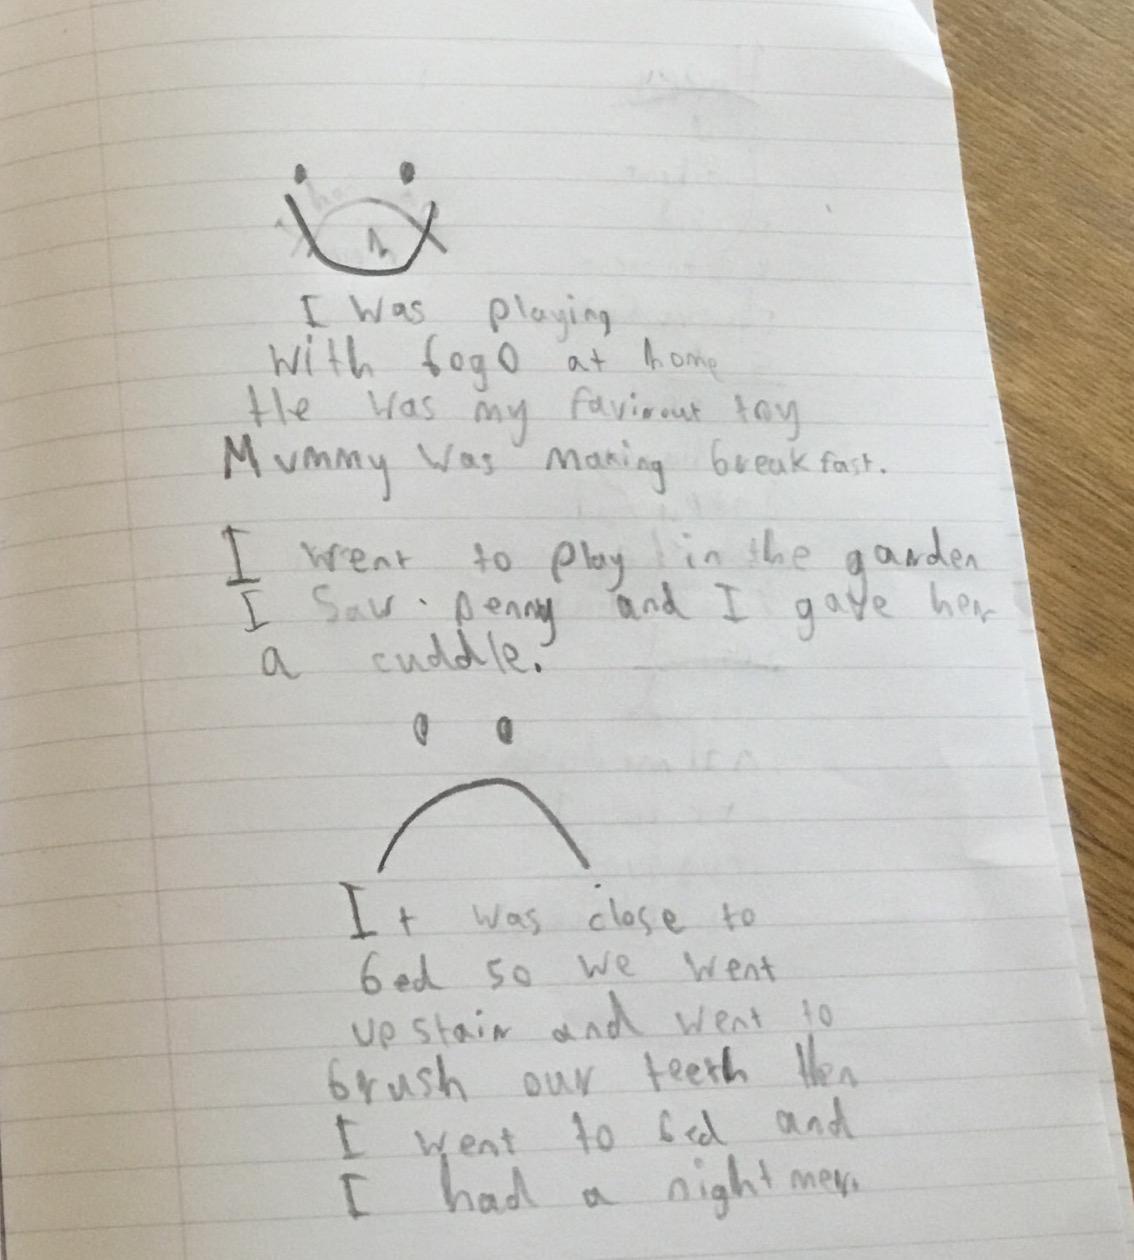 I was playing
with fogo at home
He was my favirout toy
Mummy was making breakfast.
I went to play in the garden
I saw penny and I gave her
a cuddle.
It was close to
bed so we went
up stair and went to
brush our teeth then
I went to bed and
I had a night mer.